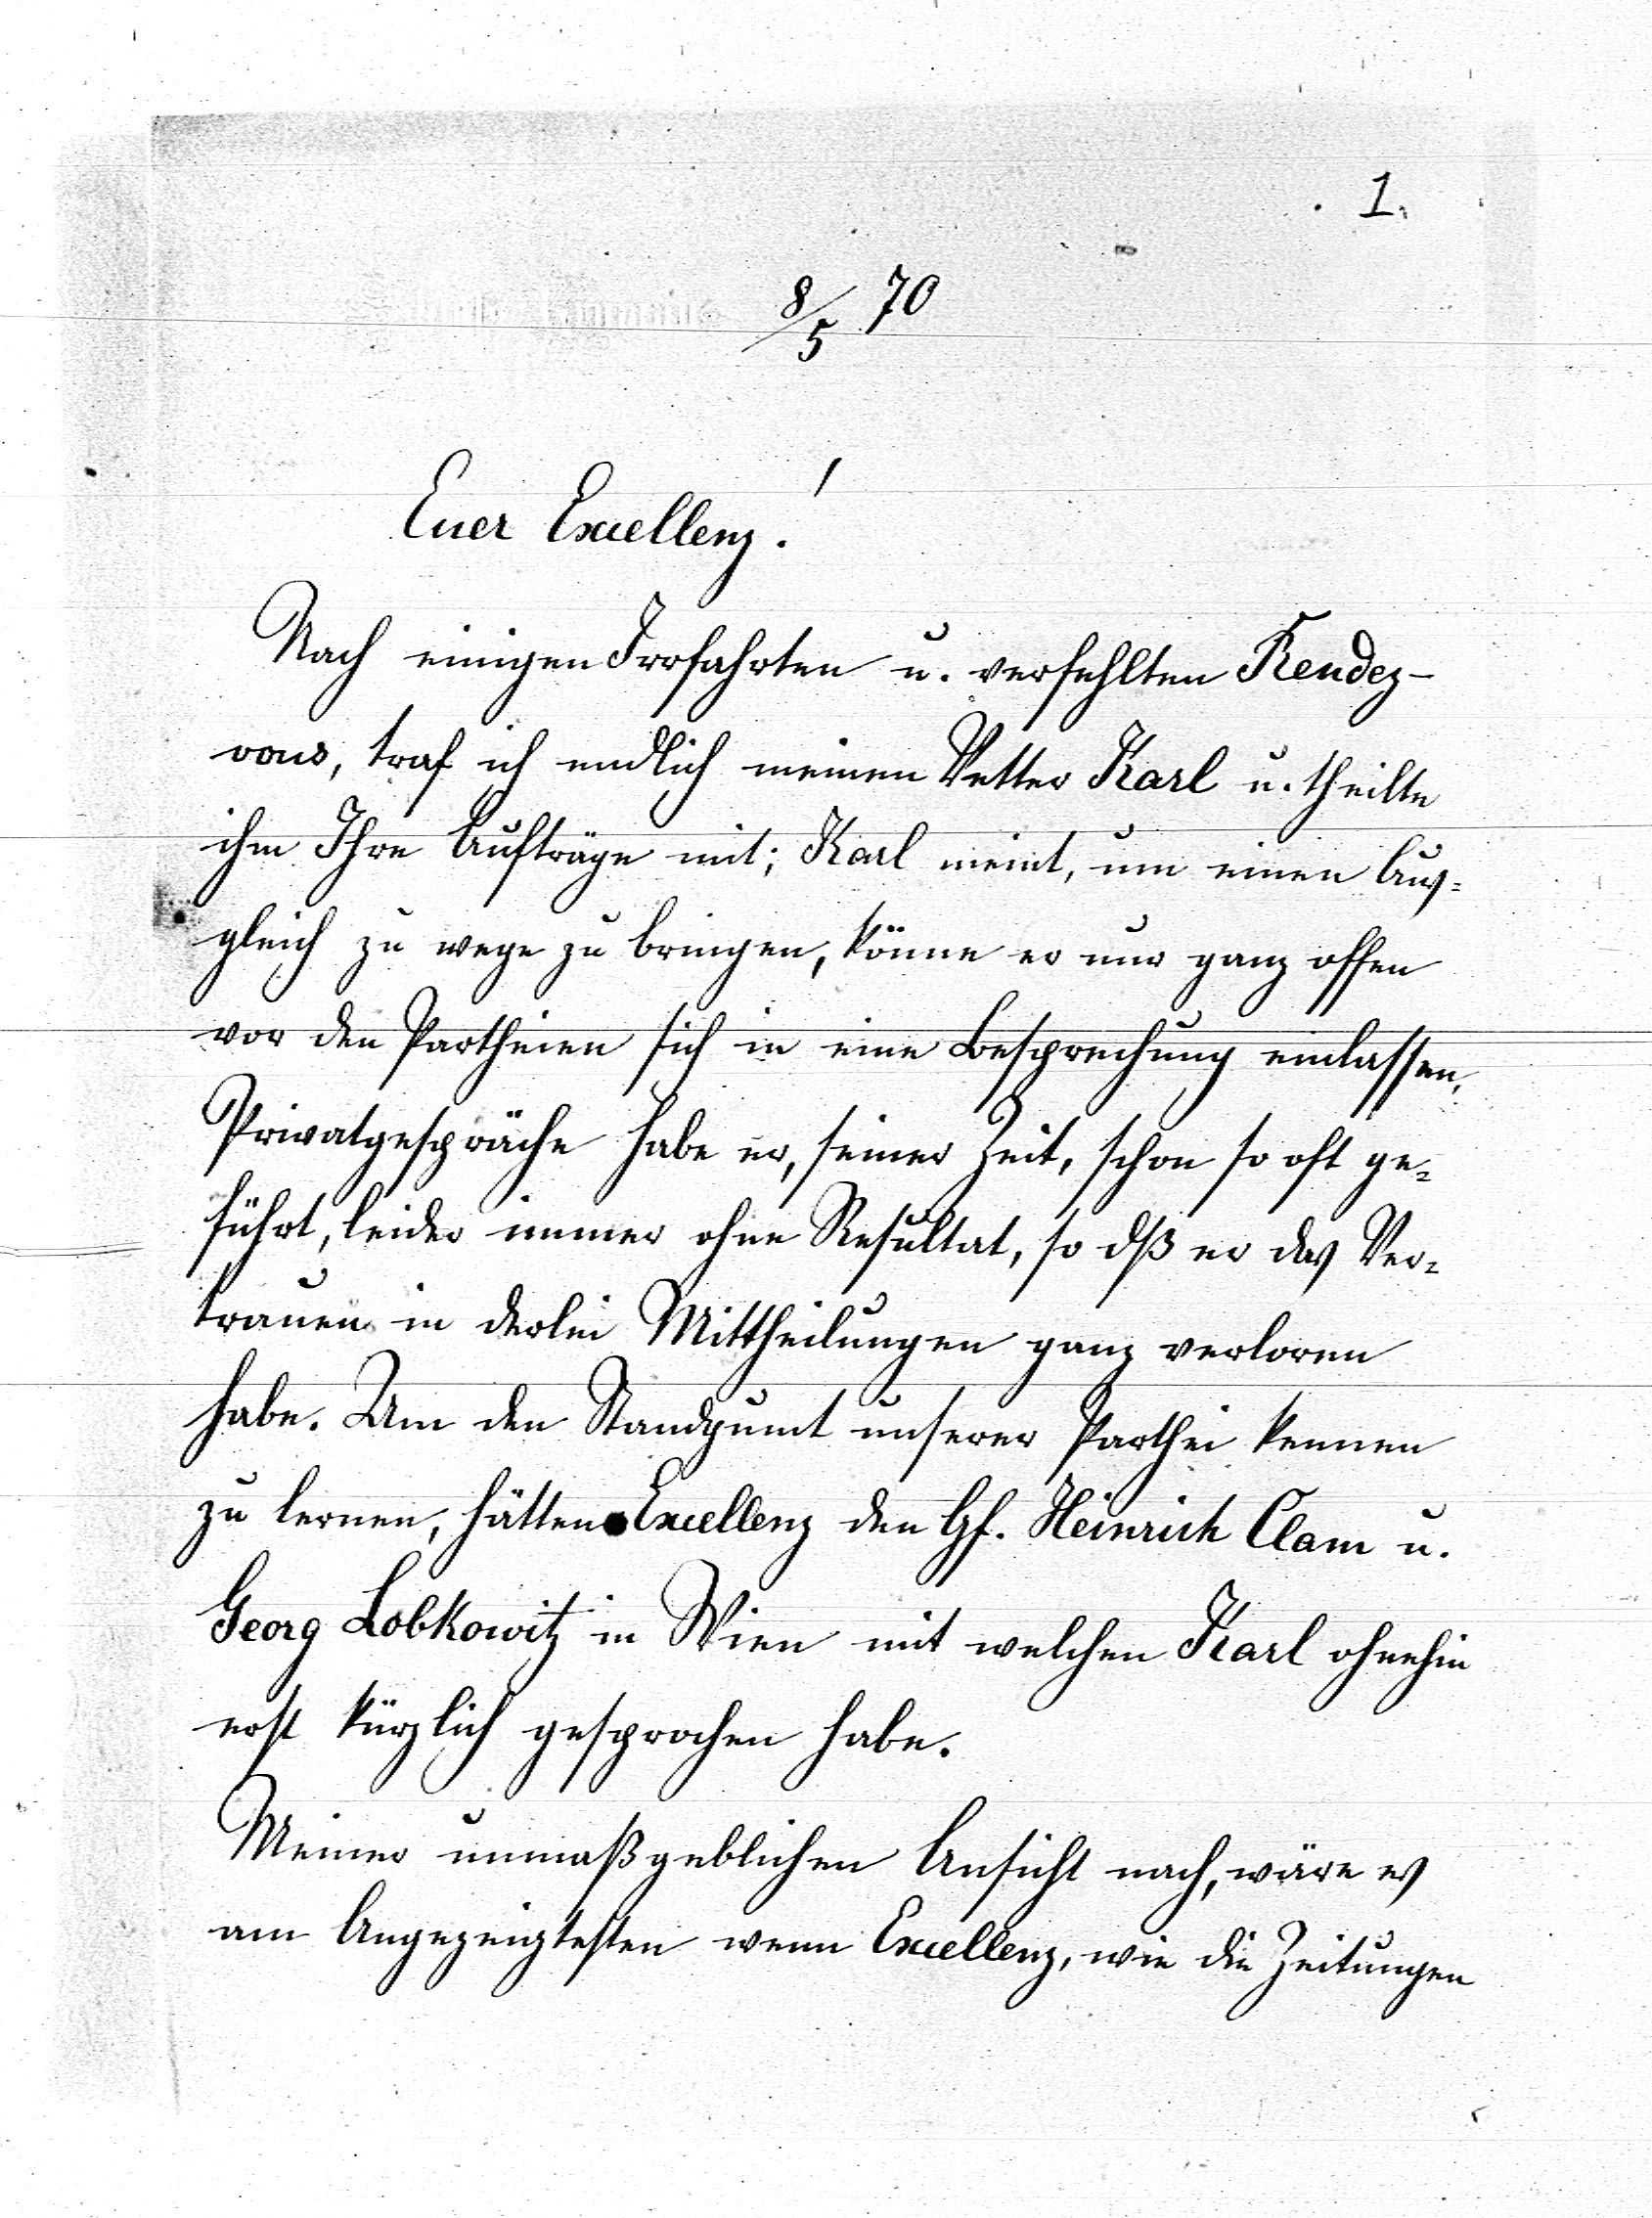 1.
8/5 70
Euer Excellenz!
Nach einigen Irrfahrten u. verfehlten Rendez-
vous, traf ich endlich meinen Vetter Karl u. theilte
ihm Ihre Aufträge mit; Karl meint, um einen Aus=
gleich zu wege zu bringen, könne er nur ganz offen
vor den Partheien sich in eine Besprechung einlassen,
Privatgespräche habe er, seiner Zeit, schon so oft ge=
führt, leider immer ohne Resultat, so dß er das Ver=
trauen in derlei Mittheilungen ganz verloren
habe. Um den Standpunct unserer Parthei kennen
zu lernen, hätten Excellenz den Gf. Heinrich Clam u.
Georg Lobkowitz in Wien mit welchen Karl ohnehin
erst kürzlich gesprochen habe.
Meiner unmaßgeblichen Ansicht nach, wäre es
am Angezeigtesten wenn Excellenz, wie die Zeitungen